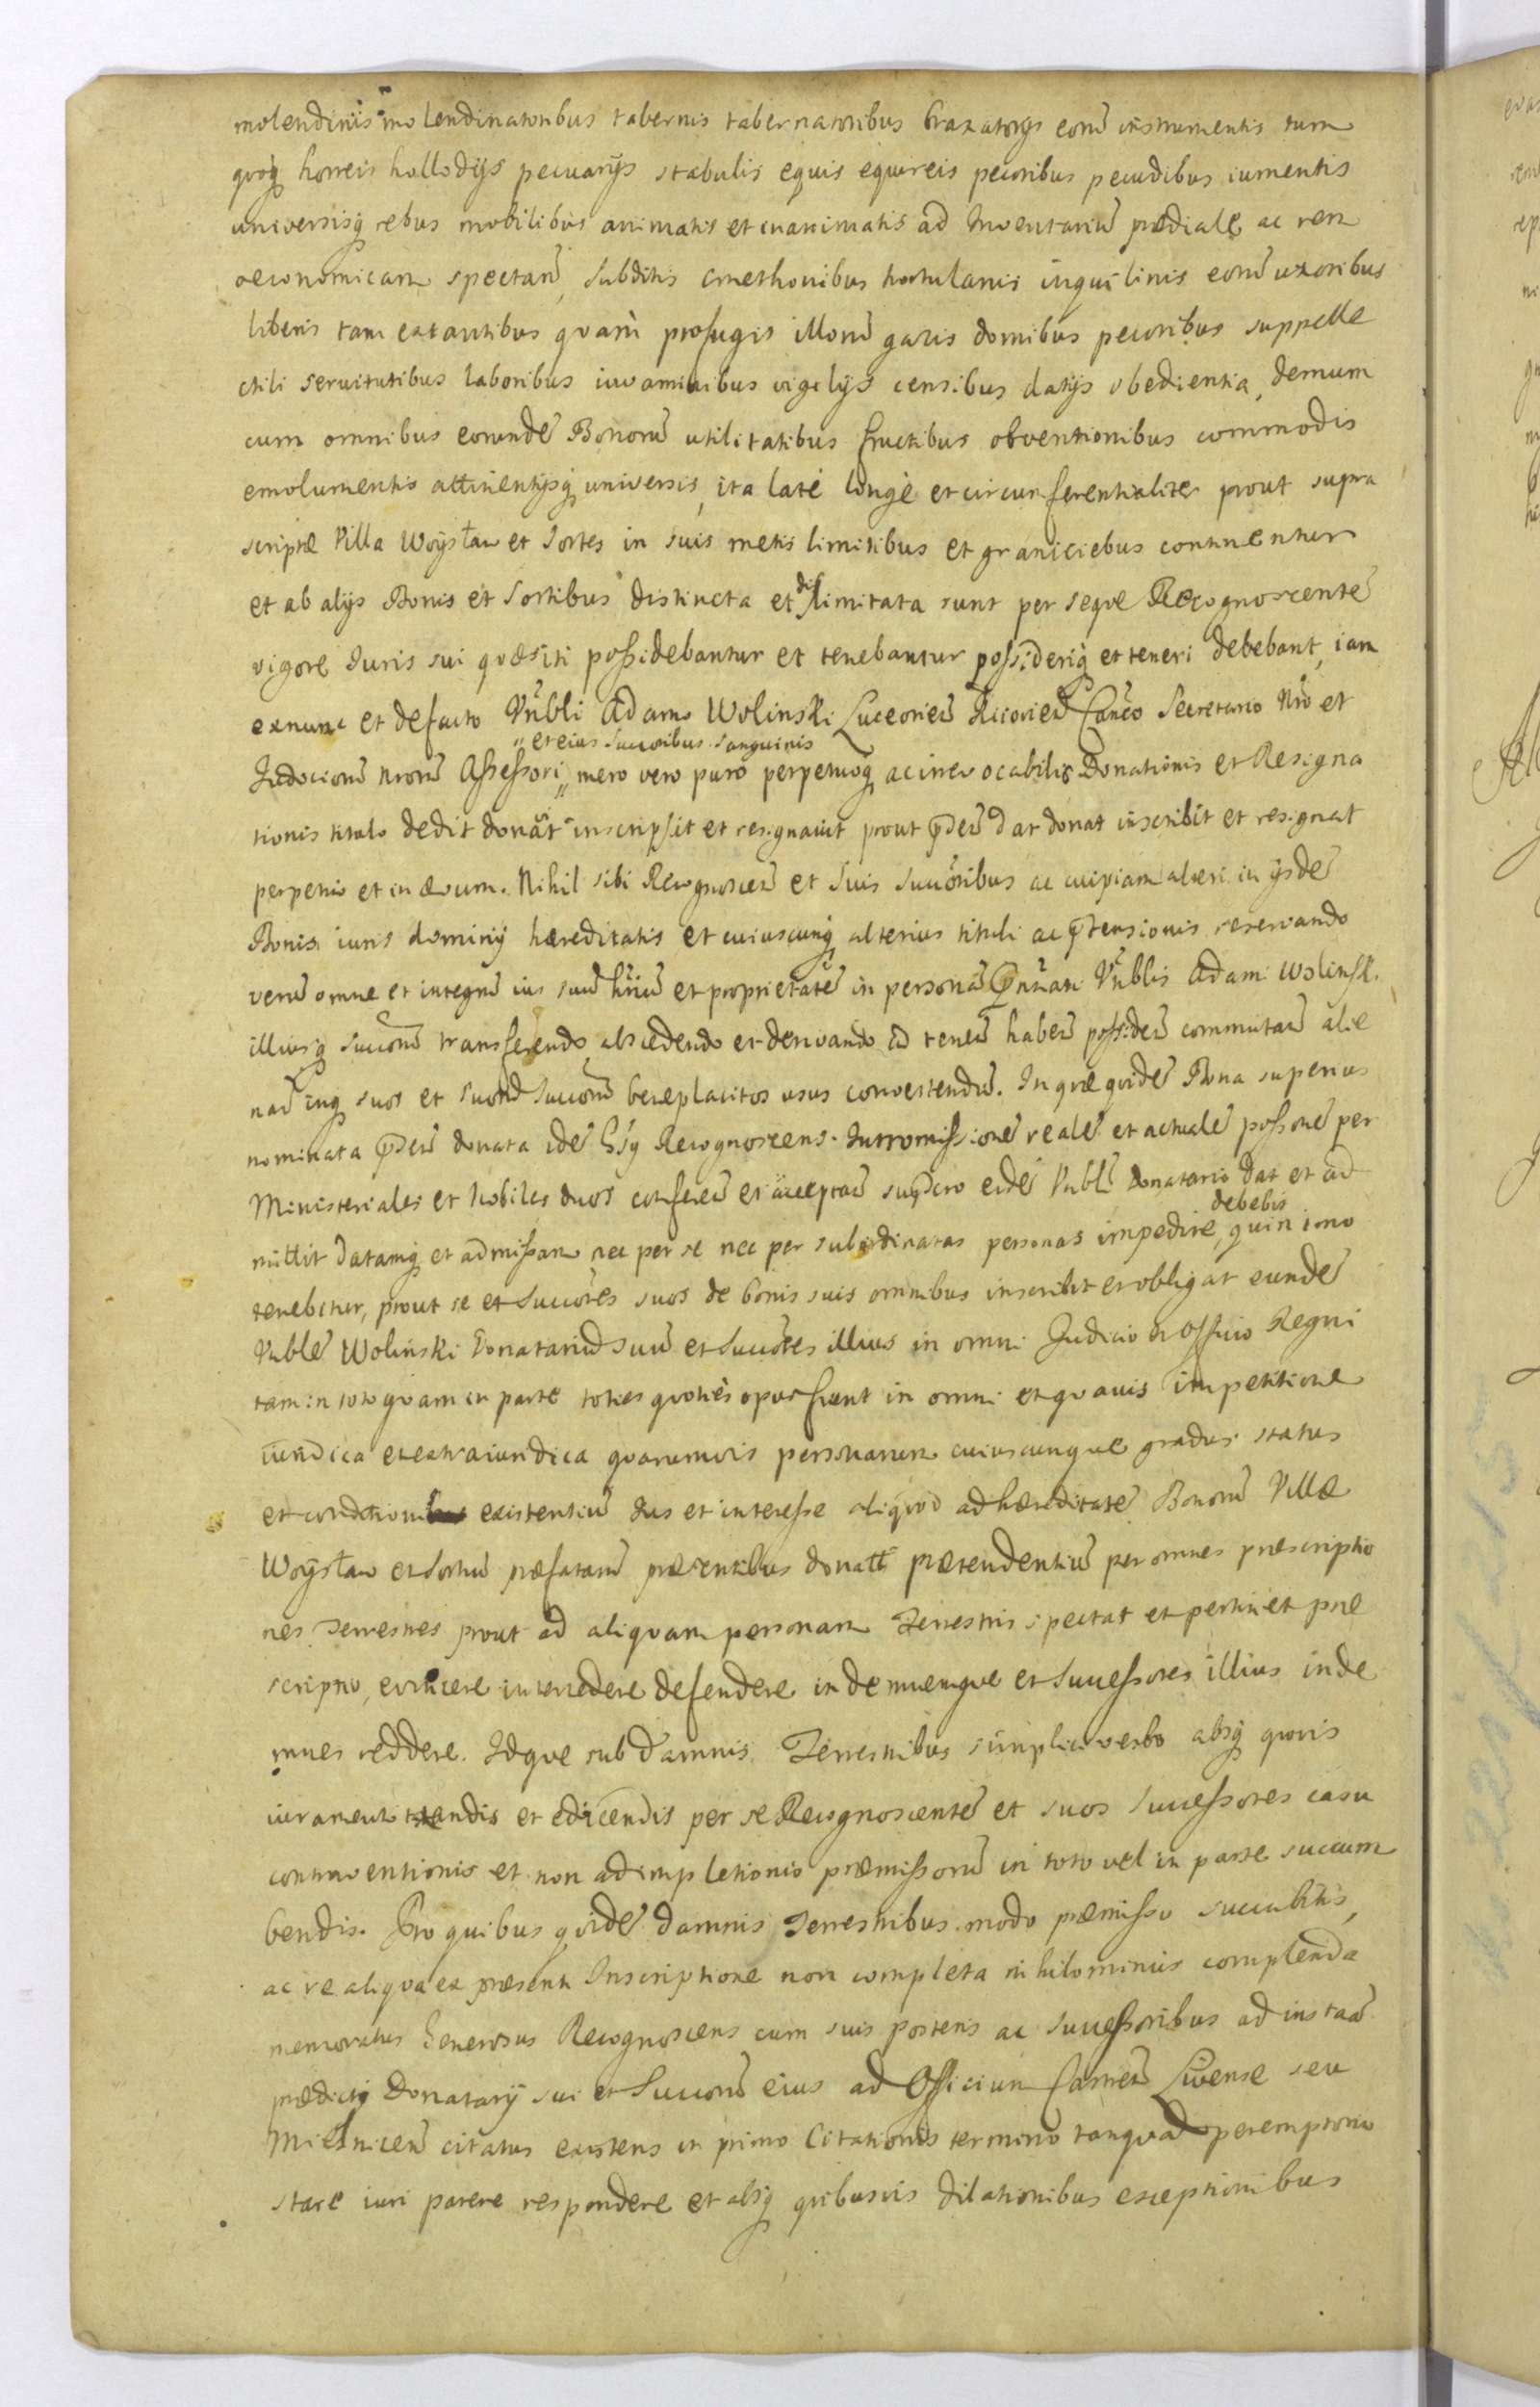 molendinis molendinatoribus tabernis tabernatoribus braxatorijs eorũ instrumentis tum
quoq̢ horreis hollodijs pecuarijs stabulis equis equireis pecoribus pecudibus iumentis
universisq̢ rebus mobilibus animatis et inanimatis ad Inventariũ prædiale ac rem
oeconomicam spectañ, subditis cmethonibus hortulanis inquilinis eorũ uxoribus
liberis tam extantibus quam profugis illorũ gazis domibus pecoribus suppelle
ctili servitutibus laboribus iuvaminibus vigilijs censibus datijs obedientia, demum
cum omnibus eorundẽ Bonorũ utilitatibus fructibus obventionibus commodis
emolumentis attinentijsq̢ universis, ita laté longè et circumferentialiter prout supra
scriptæ Villa Woÿsław et Sortes in suis metis limitibus et graniciebus continentur
et ab alijs Bonis et Sortibus distincta et dislimitata sunt per seqve Recognoscentẽ
vigore Iuris sui quæsiti possidebantur et tenebantur possideriq̢ et teneri debebant, iam
exnunc et defacto Vr̃nbli Adamo Wolinski Luceorieñ Kiiovieñ Cañco Secretario Nr̃o et
" et eius Succoribus sanguinis
Iudiciorũ nr̃orũ Assessori " mero vero puro perpetuoq̢ ac irrevocabilis Donationis et Resigna
tionis titulo dedit donãt inscripsit et resignavit prout p̃deũ dat donat inscribit et resignat
perpetuo et in ævum. Nihil sibi Recognosceñ et suis succoribus ac cuipiam alteri in ijsdẽ
Bonis iuris dominij hæreditatis et cuiuscunq̢ alterius tituli ac p̃tensionis reservando
verũ omne et integrũ ius suũ hr̃iũ et proprietatẽ in personã Vr̃blis Adami Wolinski
illiusq̢ succorũ transferendo abscedendo et derivando ad teneñ habeñ possideñ commutañ alie
nañ inq̢ suos et suorũ succorũ beneplacitos usus convertendũ. In quæ quidẽ Bona superius
nominata donata idẽ Recognoscens Intromissionẽ realẽ et actualẽ possonẽ per
Ministeriales et Nobiles duos confereñ et acceptañ eidẽ Vrblĩ Donatario dat et ad
debebis
mittit datamq̢ et admissam nec per se nec per subordinatas personas impedire, quin imo
tenebitur, prout se et succores suos de bonis suis omnibus inscribit et obligat eundẽ
Vrblẽ Wolinski Donatariũ suũ et succores illius in omni Judicio et Officio Regni
tam in toto quam in parte toties quoties opus fuerit in omni et quavis impetitione
iuridica et extraiuridica quarumvis personarum cuiuscunque gradus status
et conditionis existentiũ ius et interesse aliquod ad hæreditatẽ Bonorũ Villæ
Woÿsław et Sortiũ præfatarũ præsentibus donatt prætendentiũ per omnes præscriptio
nes Terrestres prout ad aliquam personam Terrestris spectat et pertinet præ
scriptio, evincere intercedere defendere indemnemque et Successores illius inde
mnes reddere. Idqve sub damnis Terrestribus simplici verbo absq̢ quovis
iuramento edicendis per se Recognoscentẽ et suos Successores casu
contraventionis et non adimpletionis præmissorũ in toto vel in parte succum
bendis. Pro quibus quidẽ damnis Terrestribus modo præmisso succubitis,
ac re aliqua ex præsenti Inscriptione non completa nihilominus complenda
memoratus Generosus Recognoscens cum suis posteris ac Successoribus ad instañ
prædicti Donatarij sui et Succorũ eius ad Officium Castreñ Livense seu
Mielniceñ citatus existens in primo Citationis termino tanquã peremptorio
stare iuri parere respondere et absq̢ quibusvis dilationibus exceptionibus